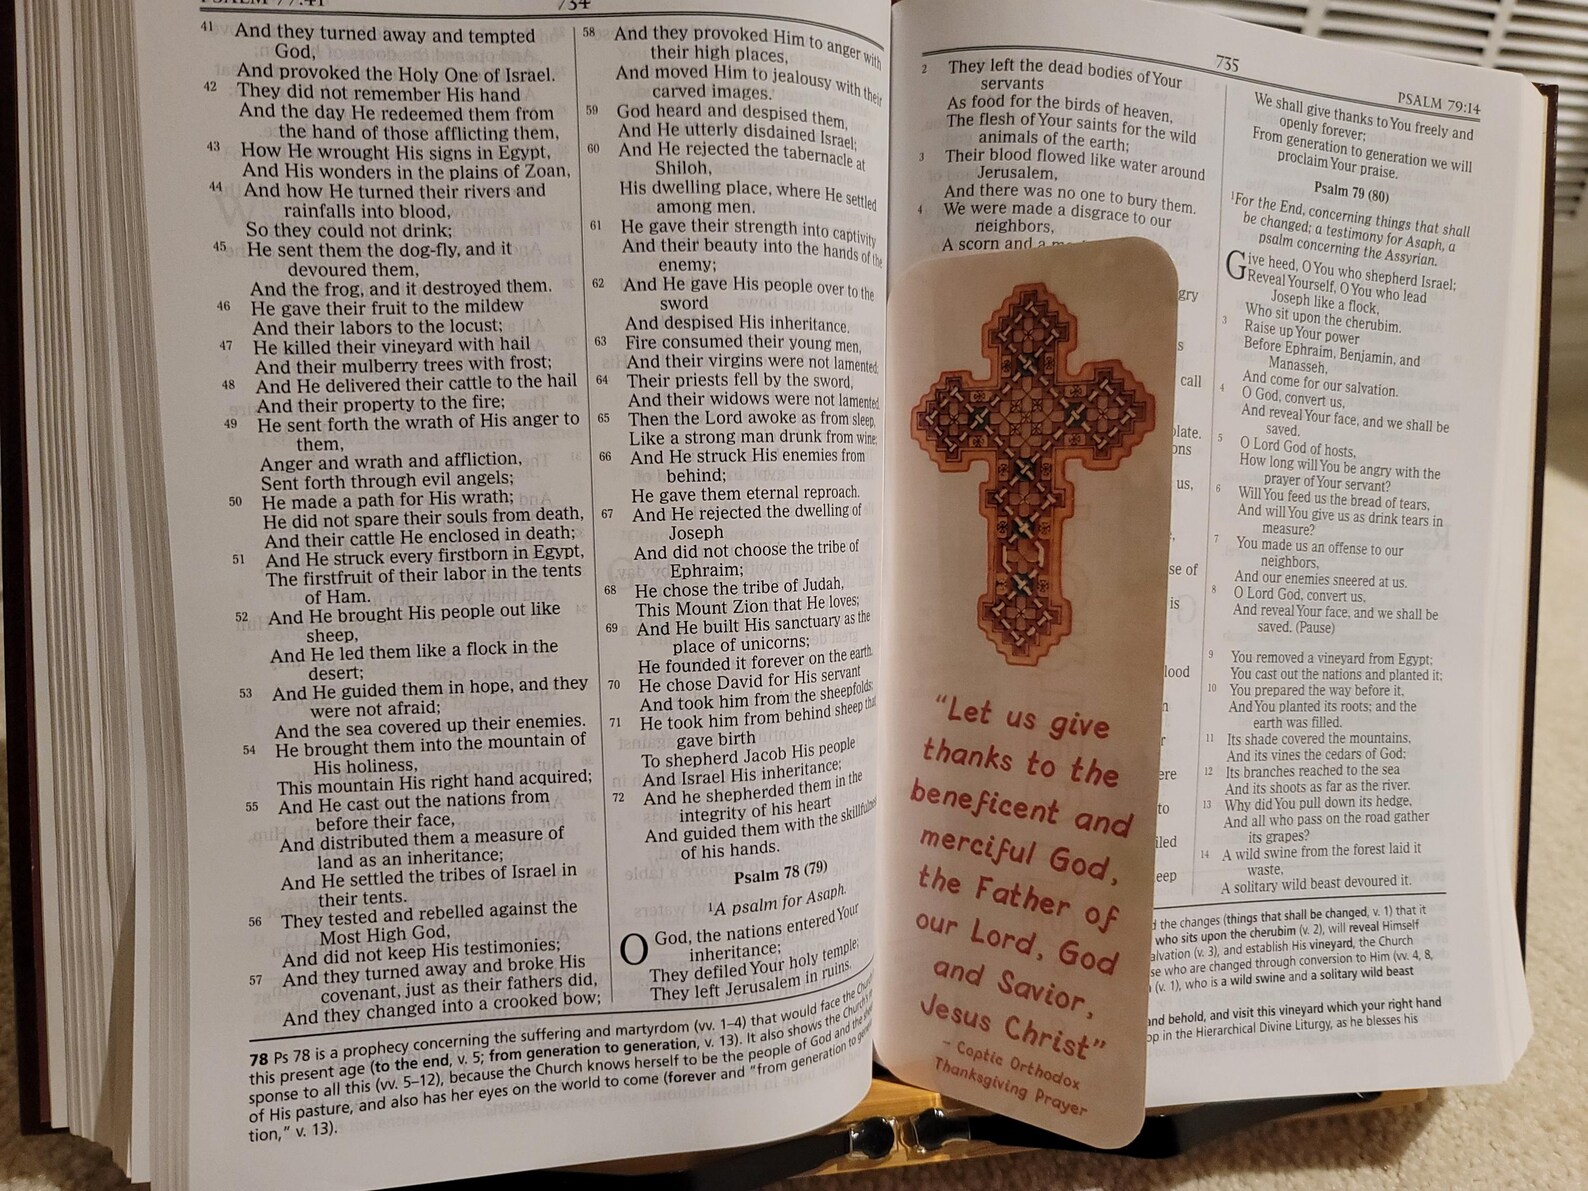 PSALM 77:41
734
41 And they turned away and tempted
God,
And provoked the Holy One of Israel.
42 They did not remember His hand
And the day He redeemed them from
the hand of those afflicting them,
43 How He wrought His signs in Egypt,
And His wonders in the plains of Zoan,
44 And how He turned their rivers and
rainfalls into blood,
So they could not drink;
45 He sent them the dog-fly, and it
devoured them,
And the frog, and it destroyed them.
46 He gave their fruit to the mildew
And their labors to the locust;
47 He killed their vineyard with hail
And their mulberry trees with frost;
48 And He delivered their cattle to the hail
And their property to the fire;
49 He sent forth the wrath of His anger to
them,
Anger and wrath and affliction,
Sent forth through evil angels;
50 He made a path for His wrath;
He did not spare their souls from death,
And their cattle He enclosed in death;
51 And He struck every firstborn in Egypt,
The firstfruit of their labor in the tents
of Ham.
52 And He brought His people out like
sheep,
And He led them like a flock in the
desert;
53 And He guided them in hope, and they
were not afraid;
And the sea covered up their enemies.
54 He brought them into the mountain of
His holiness,
This mountain His right hand acquired;
55 And He cast out the nations from
before their face,
And distributed them a measure of
land as an inheritance;
And He settled the tribes of Israel in
their tents.
56 They tested and rebelled against the
Most High God,
And did not keep His testimonies;
57 And they turned away and broke His
covenant, just as their fathers did,
And they changed into a crooked bow;
58 And they provoked Him to anger with
their high places,
And moved Him to jealousy with their
carved images.
59 God heard and despised them,
And He utterly disdained Israel;
60 And He rejected the tabernacle at
Shiloh,
His dwelling place, where He settled
among men.
61 He gave their strength into captivity
And their beauty into the hands of the
enemy;
62 And He gave His people over to the
sword
And despised His inheritance.
63 Fire consumed their young men,
And their virgins were not lamented;
64 Their priests fell by the sword,
And their widows were not lamented
65 Then the Lord awoke as from sleep,
Like a strong man drunk from wine;
66 And He struck His enemies from
behind;
He gave them eternal reproach.
67 And He rejected the dwelling of
Joseph
And did not choose the tribe of
Ephraim;
68 He chose the tribe of Judah,
This Mount Zion that He loves;
69 And He built His sanctuary as the
place of unicorns;
He founded it forever on the earth.
70 He chose David for His servant
And took him from the sheepfolds;
71 He took him from behind sheep that
gave birth
To shepherd Jacob His people
And Israel His inheritance;
72 And he shepherded them in the
integrity of his heart
And guided them with the skillfulness
of his hands.
Psalm 78 (79)
1A psalm for Asaph.
O God, the nations entered Your
inheritance;
They defiled Your holy temple;
They left Jerusalem in ruins.
78 Ps 78 is a prophecy concerning the suffering and martyrdom (vv. 1–4) that would face the Church
this present age (to the end, v. 5; from generation to generation, v. 13). It also shows the Church's
sponse to all this (vv. 5–12), because the Church knows herself to be the people of God and the
of His pasture, and also has her eyes on the world to come (forever and "from generation to
tion," v. 13).
735
PSALM 79:14
2 They left the dead bodies of Your
servants
As food for the birds of heaven,
The flesh of Your saints for the wild
animals of the earth;
3 Their blood flowed like water around
Jerusalem,
And there was no one to bury them.
4 We were made a disgrace to our
neighbors,
A scorn and a
gry
s
call
late.
ons
us,
se of
is
lood
ere
to
iled
eep
We shall give thanks to You freely and
openly forever;
From generation to generation we will
proclaim Your praise.
Psalm 79 (80)
1For the End, concerning things that shall
be changed; a testimony for Asaph, a
psalm concerning the Assyrian.
Give heed, O You who shepherd Israel;
Reveal Yourself, O You who lead
Joseph like a flock,
Who sit upon the cherubim.
3 Raise up Your power
Before Ephraim, Benjamin, and
Manasseh,
And come for our salvation.
4 O God, convert us,
And reveal Your face, and we shall be
saved.
5 O Lord God of hosts,
How long will You be angry with the
prayer of Your servant?
6 Will You feed us the bread of tears,
And will You give us as drink tears in
measure?
7 You made us an offense to our
neighbors,
And our enemies sneered at us.
8 O Lord God, convert us,
And reveal Your face, and we shall be
saved. (Pause)
9 You removed a vineyard from Egypt;
You cast out the nations and planted it;
10 You prepared the way before it,
And You planted its roots; and the
earth was filled.
11 Its shade covered the mountains,
And its vines the cedars of God;
12 Its branches reached to the sea
And its shoots as far as the river.
13 Why did You pull down its hedge,
And all who pass on the road gather
its grapes?
14 A wild swine from the forest laid it
waste,
A solitary wild beast devoured it.
d the changes (things that shall be changed, v. 1) that it
who sits upon the cherubim (v. 2), will reveal Himself
alvation (v. 3), and establish His vineyard, the Church
se who are changed through conversion to Him (vv. 4, 8,
(v. 1), who is a wild swine and a solitary wild beast
and behold, and visit this vineyard which your right hand
op in the Hierarchical Divine Liturgy, as he blesses his
"Let us give
thanks to the
beneficent and
merciful God,
the Father of
our Lord, God
and Savior,
Jesus Christ"
- Coptic Orthodox
Thanksgiving Prayer